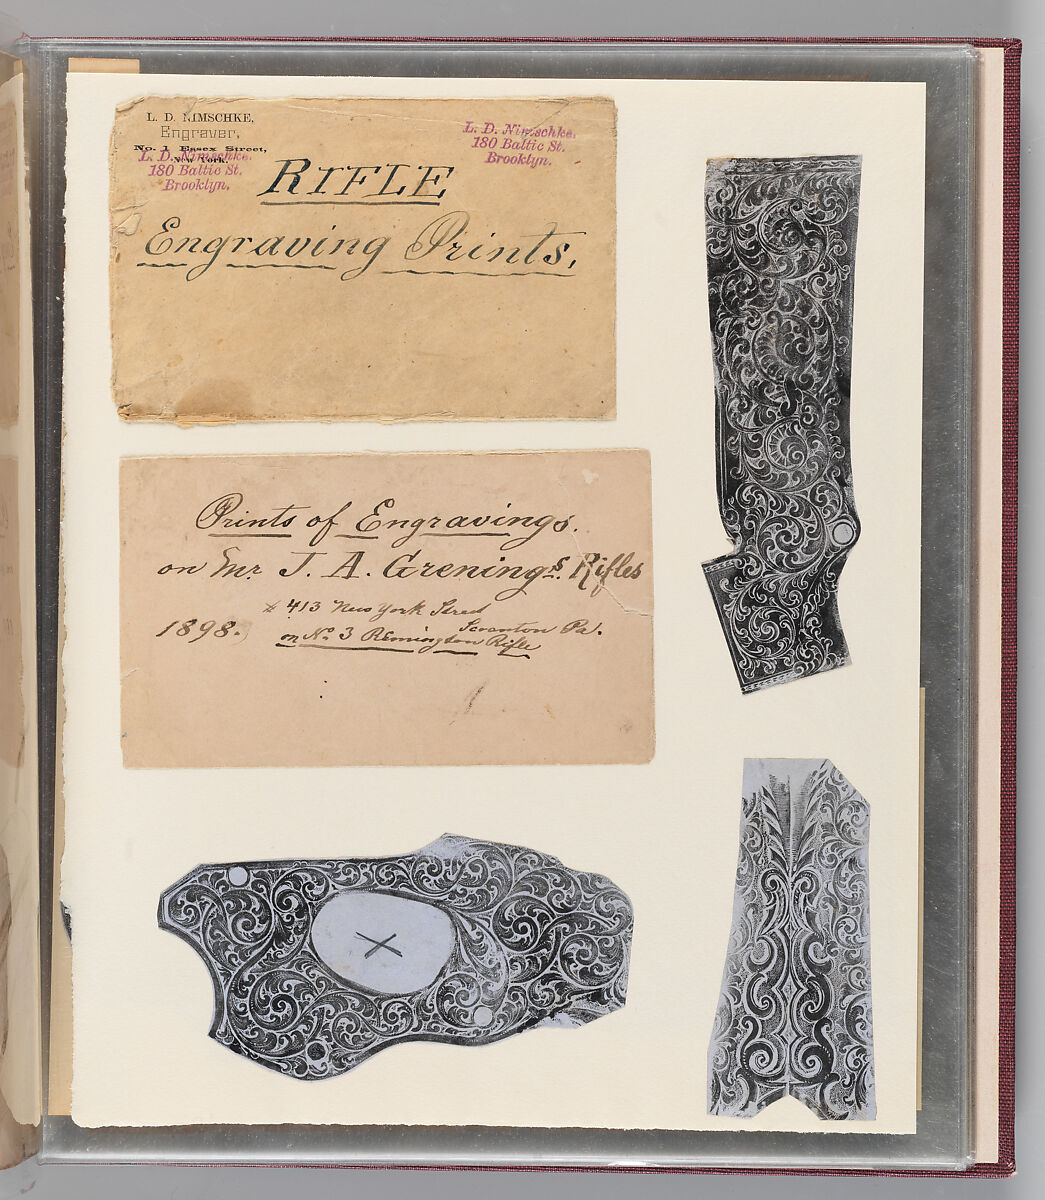 L. D. NIMSCHKE,
Engraver,
No. 1 Essex Street,
New York.
L. D. Nimschke.
180 Baltic St.
Brooklyn.
L. D. Nimschke.
180 Baltic St.
Brooklyn.
RIFLE
Engraving Prints,
Prints of Engravings.
on Mr. J. A. Grenings. Rifles
413 New York Street
Scranton Pa.
1898.
on No. 3 Remington Rifle